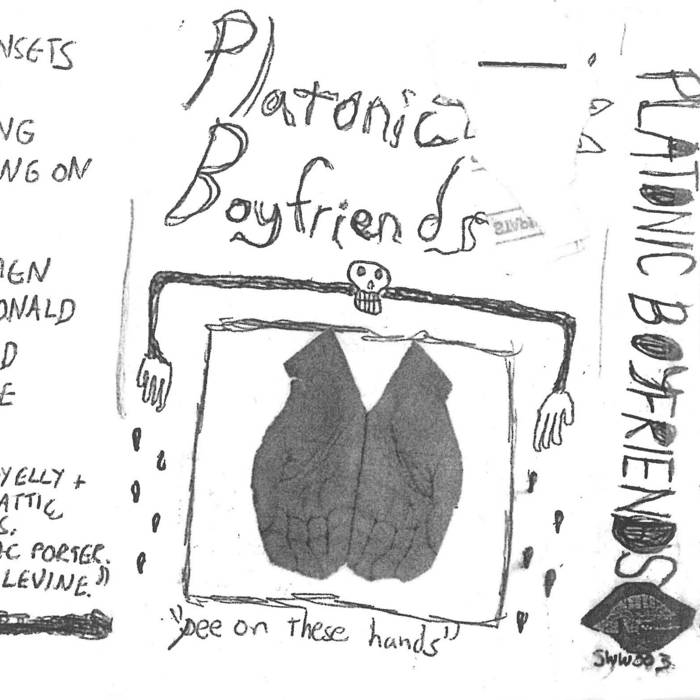 NSETS
NG
NG ON
EN
ONALD
D
E
YELLY +
ATTIC
S.
IC PORTER.
LEVINE."
Platonic
Boyfriends
"pee on these hands"
PLATONIC BOYFRIENDS
SWW003